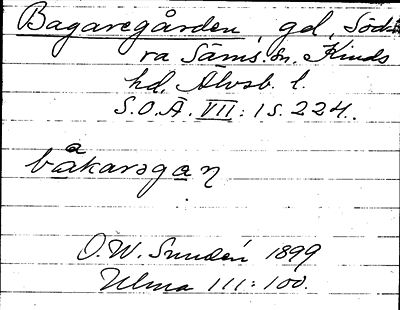 Bagaregården, gd, Söd-
ra Säms sn. Kinds
hd, Älvsb. l.
S.O.Ä. VII: 1 s. 224.
båkarəgan
O.W. Sundén 1899
Ulma 111:100.